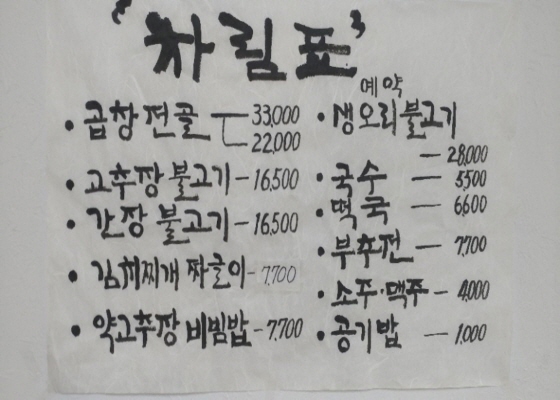 '차림표'
• 곱창전골 33,000
22,000
• 고추장 불고기 - 16,500
• 간장 불고기 - 16,500
• 김치찌개 짜글이 - 7,700
• 약고추장 비빔밥 - 7,700
예약
• 생오리불고기
- 28,000
• 국수 - 5,500
• 떡국 - 6,600
• 부추전 - 7,700
• 소주·맥주 - 4,000
• 공기밥 - 1,000